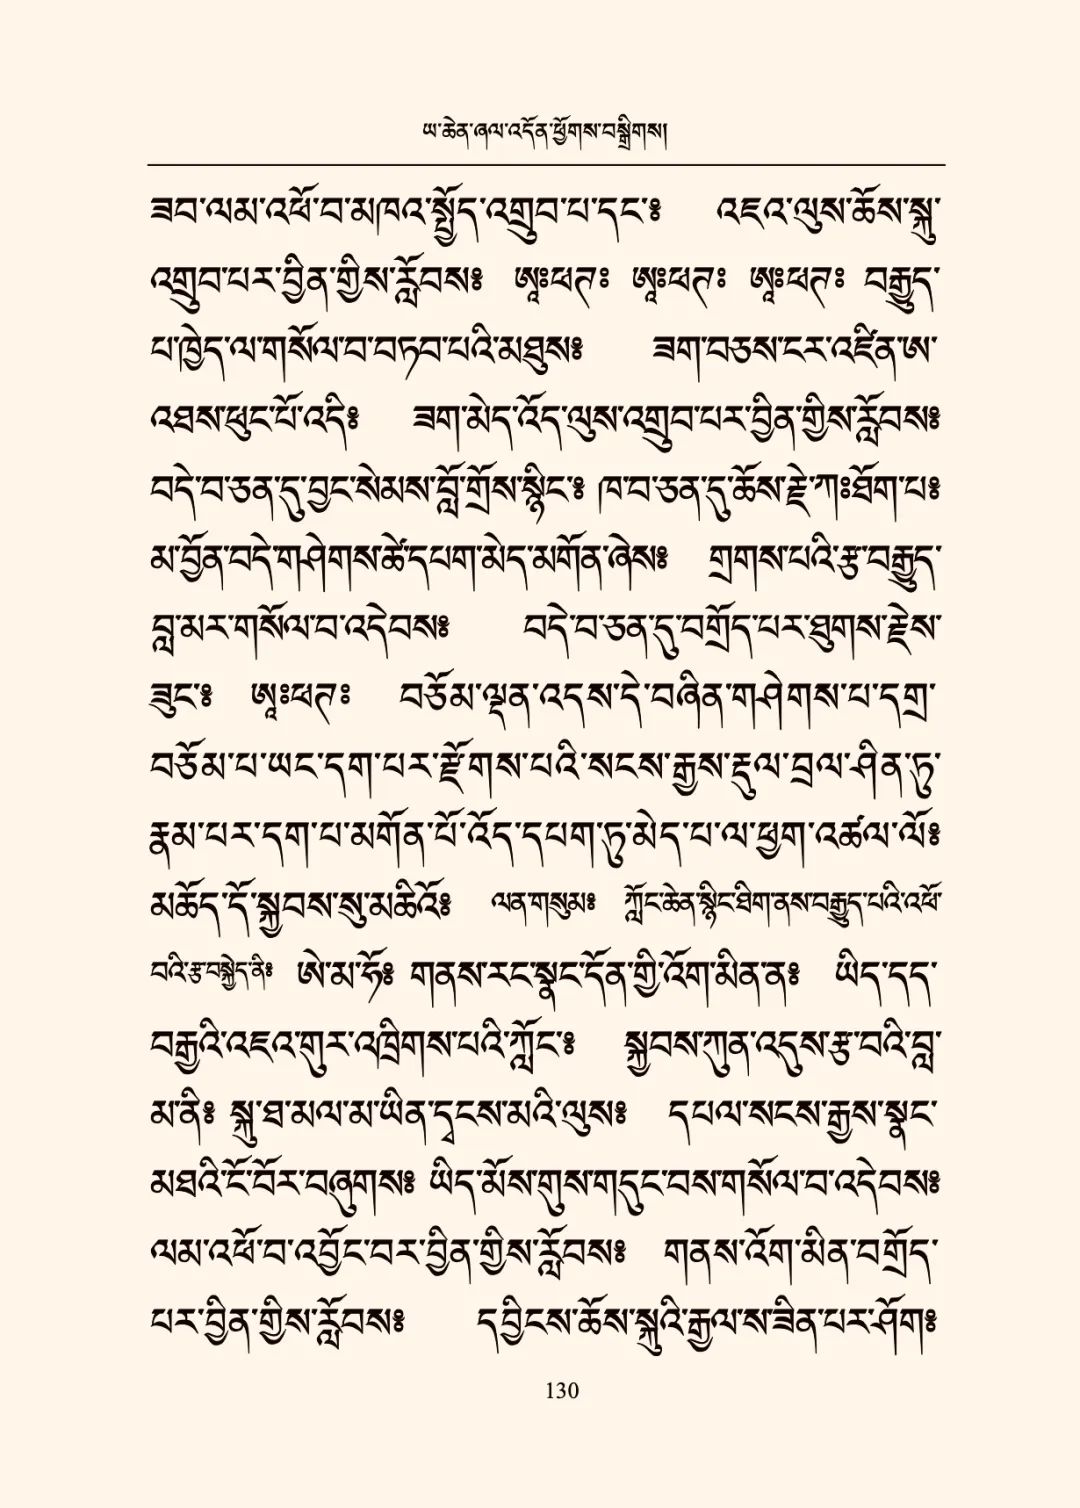 ཡ་ཆེན་ཞལ་འདོན་ཕྱོགས་བསྒྲིགས།
ཟབ་ལམ་འཕོ་བ་མཁའ་སྤྱོད་འགྲུབ་པ་དང་༔ འཇའ་ལུས་ཆོས་སྐུ་
འགྲུབ་པར་བྱིན་གྱིས་རློབས༔ ཨཱཿཕཊ༔ ཨཱཿཕཊ༔ ཨཱཿཕཊ༔ བརྒྱུད་
པ་ཁྱེད་ལ་གསོལ་བ་བཏབ་པའི་མཐུས༔ ཟག་བཅས་ངར་འཛིན་ཨ་
འཐས་ཕུང་པོ་འདི༔ ཟག་མེད་འོད་ལུས་འགྲུབ་པར་བྱིན་གྱིས་རློབས༔
བདེ་བ་ཅན་དུ་བྱང་སེམས་བློ་གྲོས་སྙིང་༔ ཁ་བ་ཅན་དུ་ཆོས་རྗེ་ཀཿཐོག་པ༔
མ་བྱོན་བདེ་གཤེགས་ཚེ་དཔག་མེད་མགོན་ཞེས༔ གྲགས་པའི་རྩ་བརྒྱུད་
བླ་མར་གསོལ་བ་འདེབས༔ བདེ་བ་ཅན་དུ་བགྲོད་པར་ཐུགས་རྗེས་
ཟུང་༔ ཨཱཿཕཊ༔ བཅོམ་ལྡན་འདས་དེ་བཞིན་གཤེགས་པ་དགྲ་
བཅོམ་པ་ཡང་དག་པར་རྫོགས་པའི་སངས་རྒྱས་རྡུལ་བྲལ་ཤིན་ཏུ་
རྣམ་པར་དག་པ་མགོན་པོ་འོད་དཔག་ཏུ་མེད་པ་ལ་ཕྱག་འཚལ་ལོ༔
མཆོད་དོ་སྐྱབས་སུ་མཆིའོ༔ ལན་གསུམ༔ ཀློང་ཆེན་སྙིང་ཐིག་ནས་བརྒྱུད་པའི་འཕོ་
བའི་རྩ་བསྐྱེད་ནི༔ ཨེ་མ་ཧོ༔ གནས་རང་སྣང་དོན་གྱི་འོག་མིན་ན༔ ཡིད་དད་
བརྒྱའི་འཇའ་གུར་འཁྲིགས་པའི་ཀློང་༔ སྐྱབས་ཀུན་འདུས་རྩ་བའི་བླ་
མ་ནི༔ སྐུ་ཐ་མལ་མ་ཡིན་དྭངས་མའི་ལུས༔ དཔལ་སངས་རྒྱས་སྣང་
མཐའི་ངོ་བོར་བཞུགས༔ ཡིད་མོས་གུས་གདུང་བས་གསོལ་བ་འདེབས༔
ལམ་འཕོ་བ་འབྱོང་བར་བྱིན་གྱིས་རློབས༔ གནས་འོག་མིན་བགྲོད་
པར་བྱིན་གྱིས་རློབས༔ དབྱིངས་ཆོས་སྐུའི་རྒྱལ་ས་ཟིན་པར་ཤོག༔
130